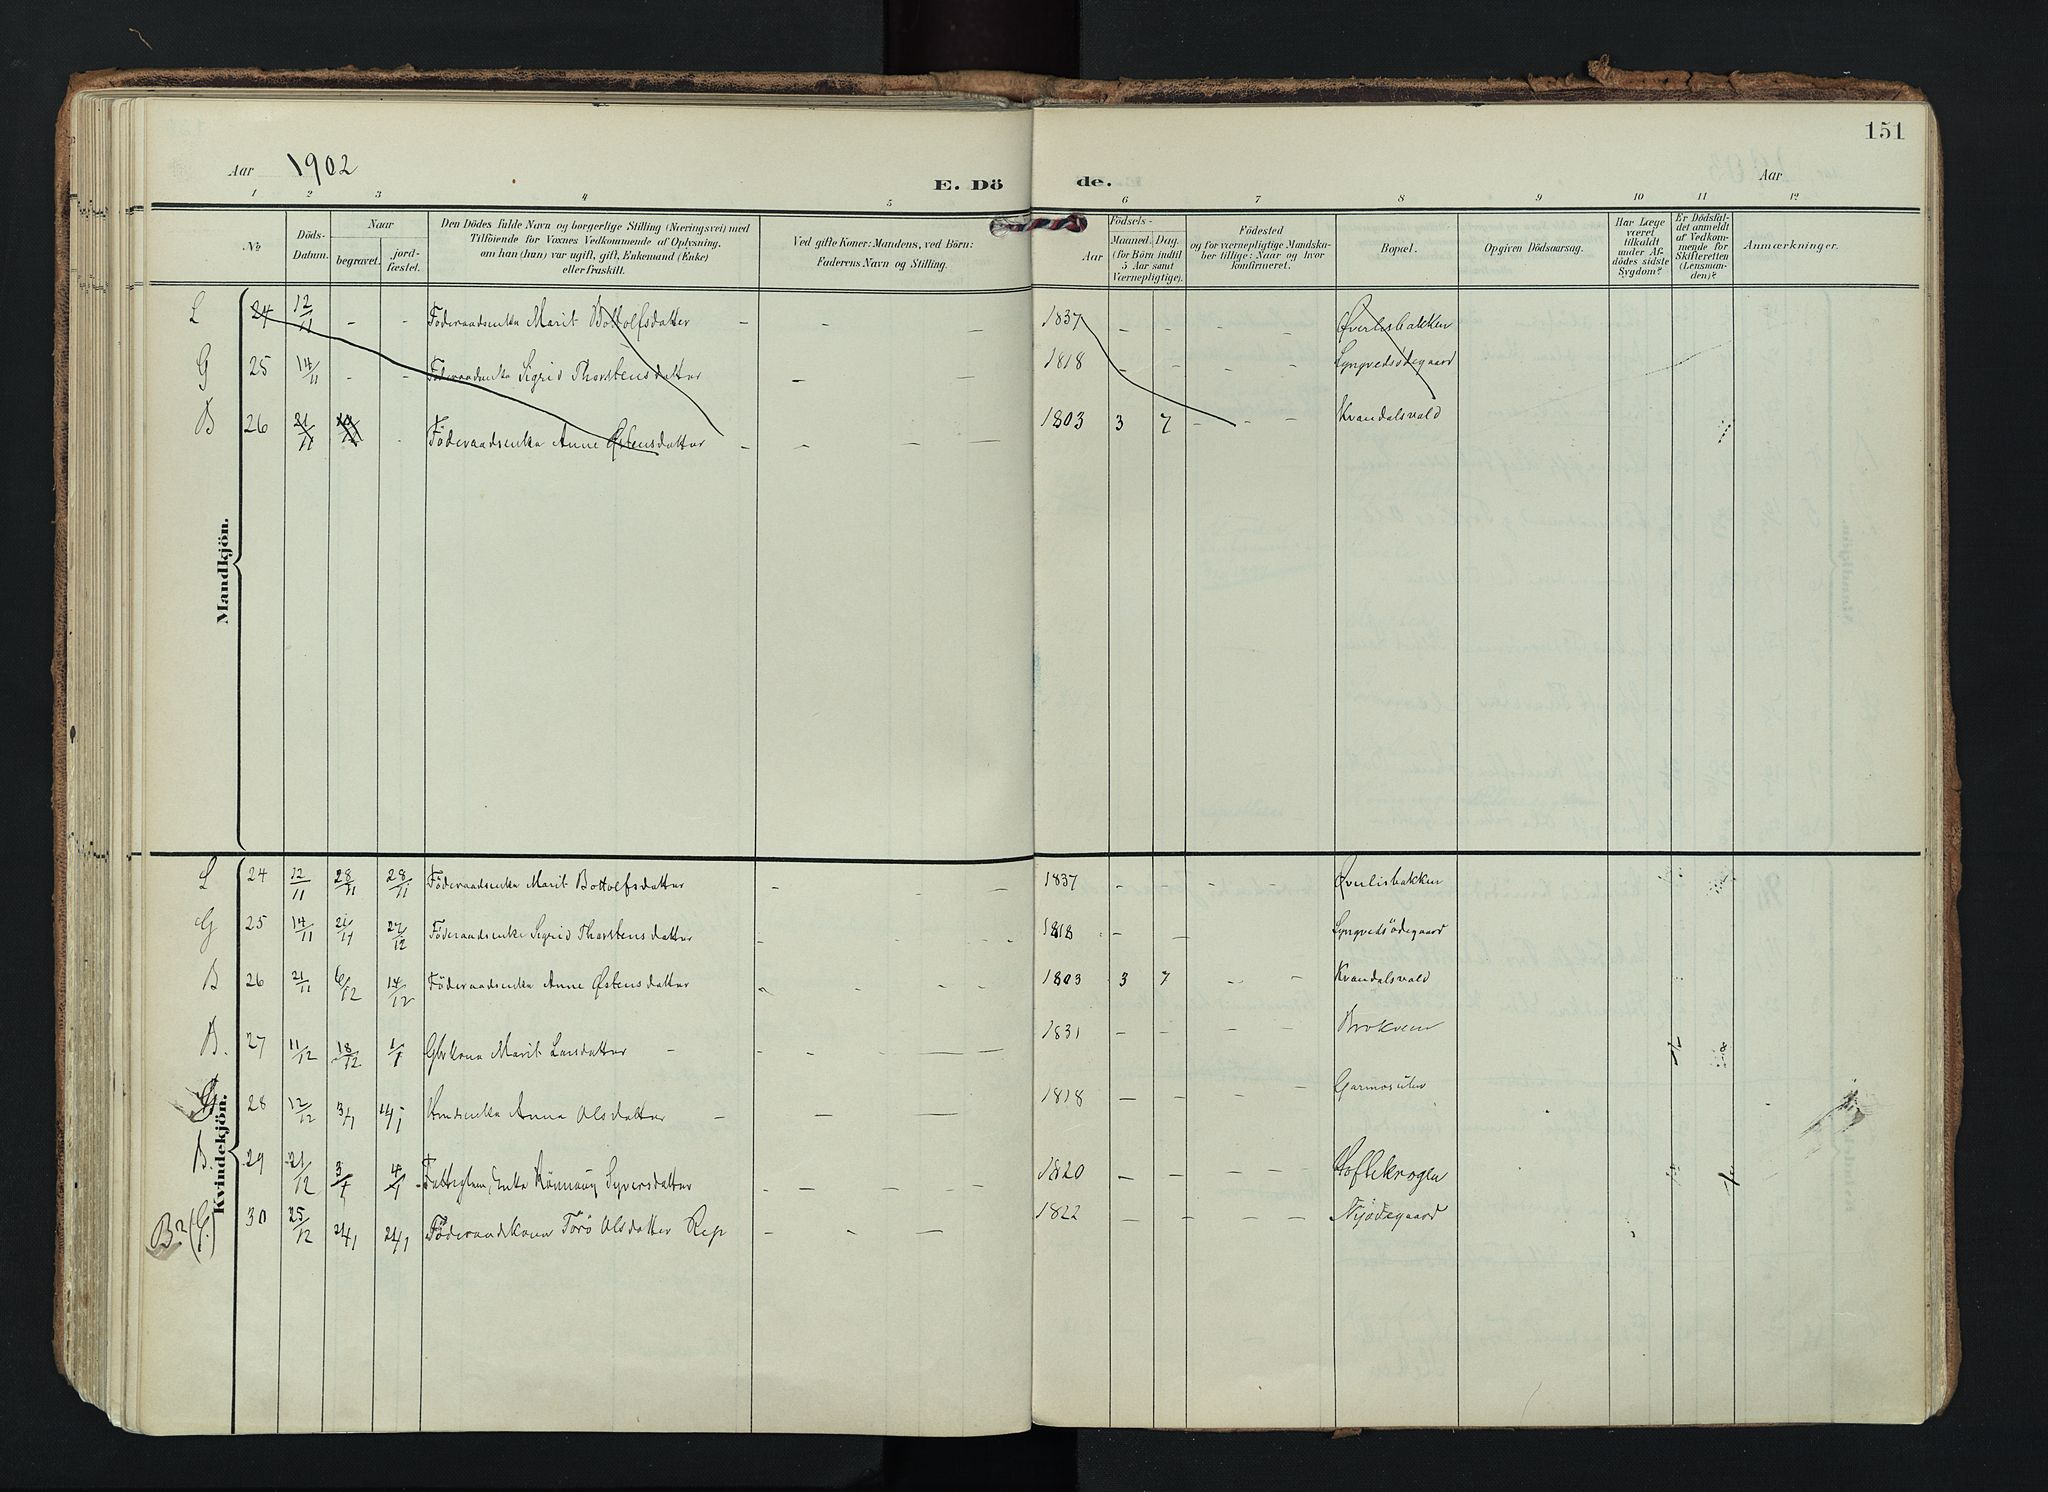 151
Aar 1902 E. Dö de. Aar
1 2 3 4 5 6 7 8 9 10 11 12
№ Döds-Datum. Naar begravet. jordfæstet. Den Dödes fulde Navn og borgerlige Stilling (Næringsvei) med Tilföiende for Voxnes Vedkommende af Oplysning, om han (hun) var ugift, gift, Enkemand (Enke) eller fraskilt. Ved gifte Koner: Mandens, ved Börn: Faderens Navn og Stilling. Födsels- Aar Maaned. Dag. (for Börn indtil 5 Aar samt Værnepligtige). Födested og for værnepligtige Mandskaber tillige: Naar og hvor konfirmeret. Bopæl. Opgiven Dödsaarsag. Har Læge været tilkaldt under Afdödes sidste Sygdom? Er Dödsfaldet anmeldt af Vedkommende for Skifteretten (Lensmanden)? Anmærkninger.
Mandkjön.
L 24 12/11 - - Föderaadsenke Marit Bottolfsdatter - - - 1837 - - - - Øverlisbakken
G 25 14/11 - - Föderaadsenke Sigrid Thorstensdatter - - 1818 - - - - Lyngvedsödegaard
B 26 21/11 - Föderaadsenke Anne Østensdatter - - - - 1803 3 7 - - - Kvandalsvald
Kvindekjön.
L 24 12/11 28/11 28/11 Föderaadsenke Marit Bottolfsdatter - - - - 1837 - - - Øverlisbakken
G 25 14/11 21/11 27/12 Föderaadsenke Sigrid Thorstensdatter - - - - 1818 - - Lyngvedsödegaard
B 26 21/11 6/12 14/12 Föderaadsenke Anne Østensdatter - - - - 1803 3 7 - - Kvandalsvald
B. 27 11/12 18/12 1/1 Gbrkone Marit Larsdatter - - - - - - 1831 - - - - - Brokvem
G 28 12/12 3/1 4/1 Husenke Anne Olsdatter - - - 1818 - - - - Garmosutu
B. 29 21/12 3/1 4/1 Fattiglem, Enke Rönnaug Syversdatter - - - - - 1820 - - - - - Hoflekrogen
B? (G.) 30 25/12 24/1 24/1 Föderaadskone Törö Olsdatter Rep - - - 1822 - - - - - Nyödegaard